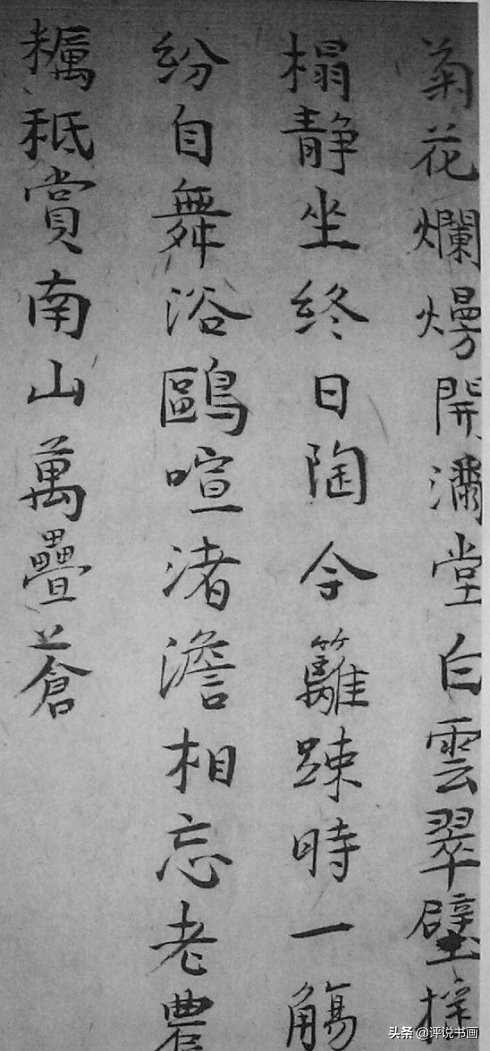 菊花爛熳開滿堂白雲翠壁
榻静坐終日陶令籬踈時一觴
紛自舞浴鷗喧渚澹相忘老農
秪賞南山萬疊蒼
头条 @评说书画